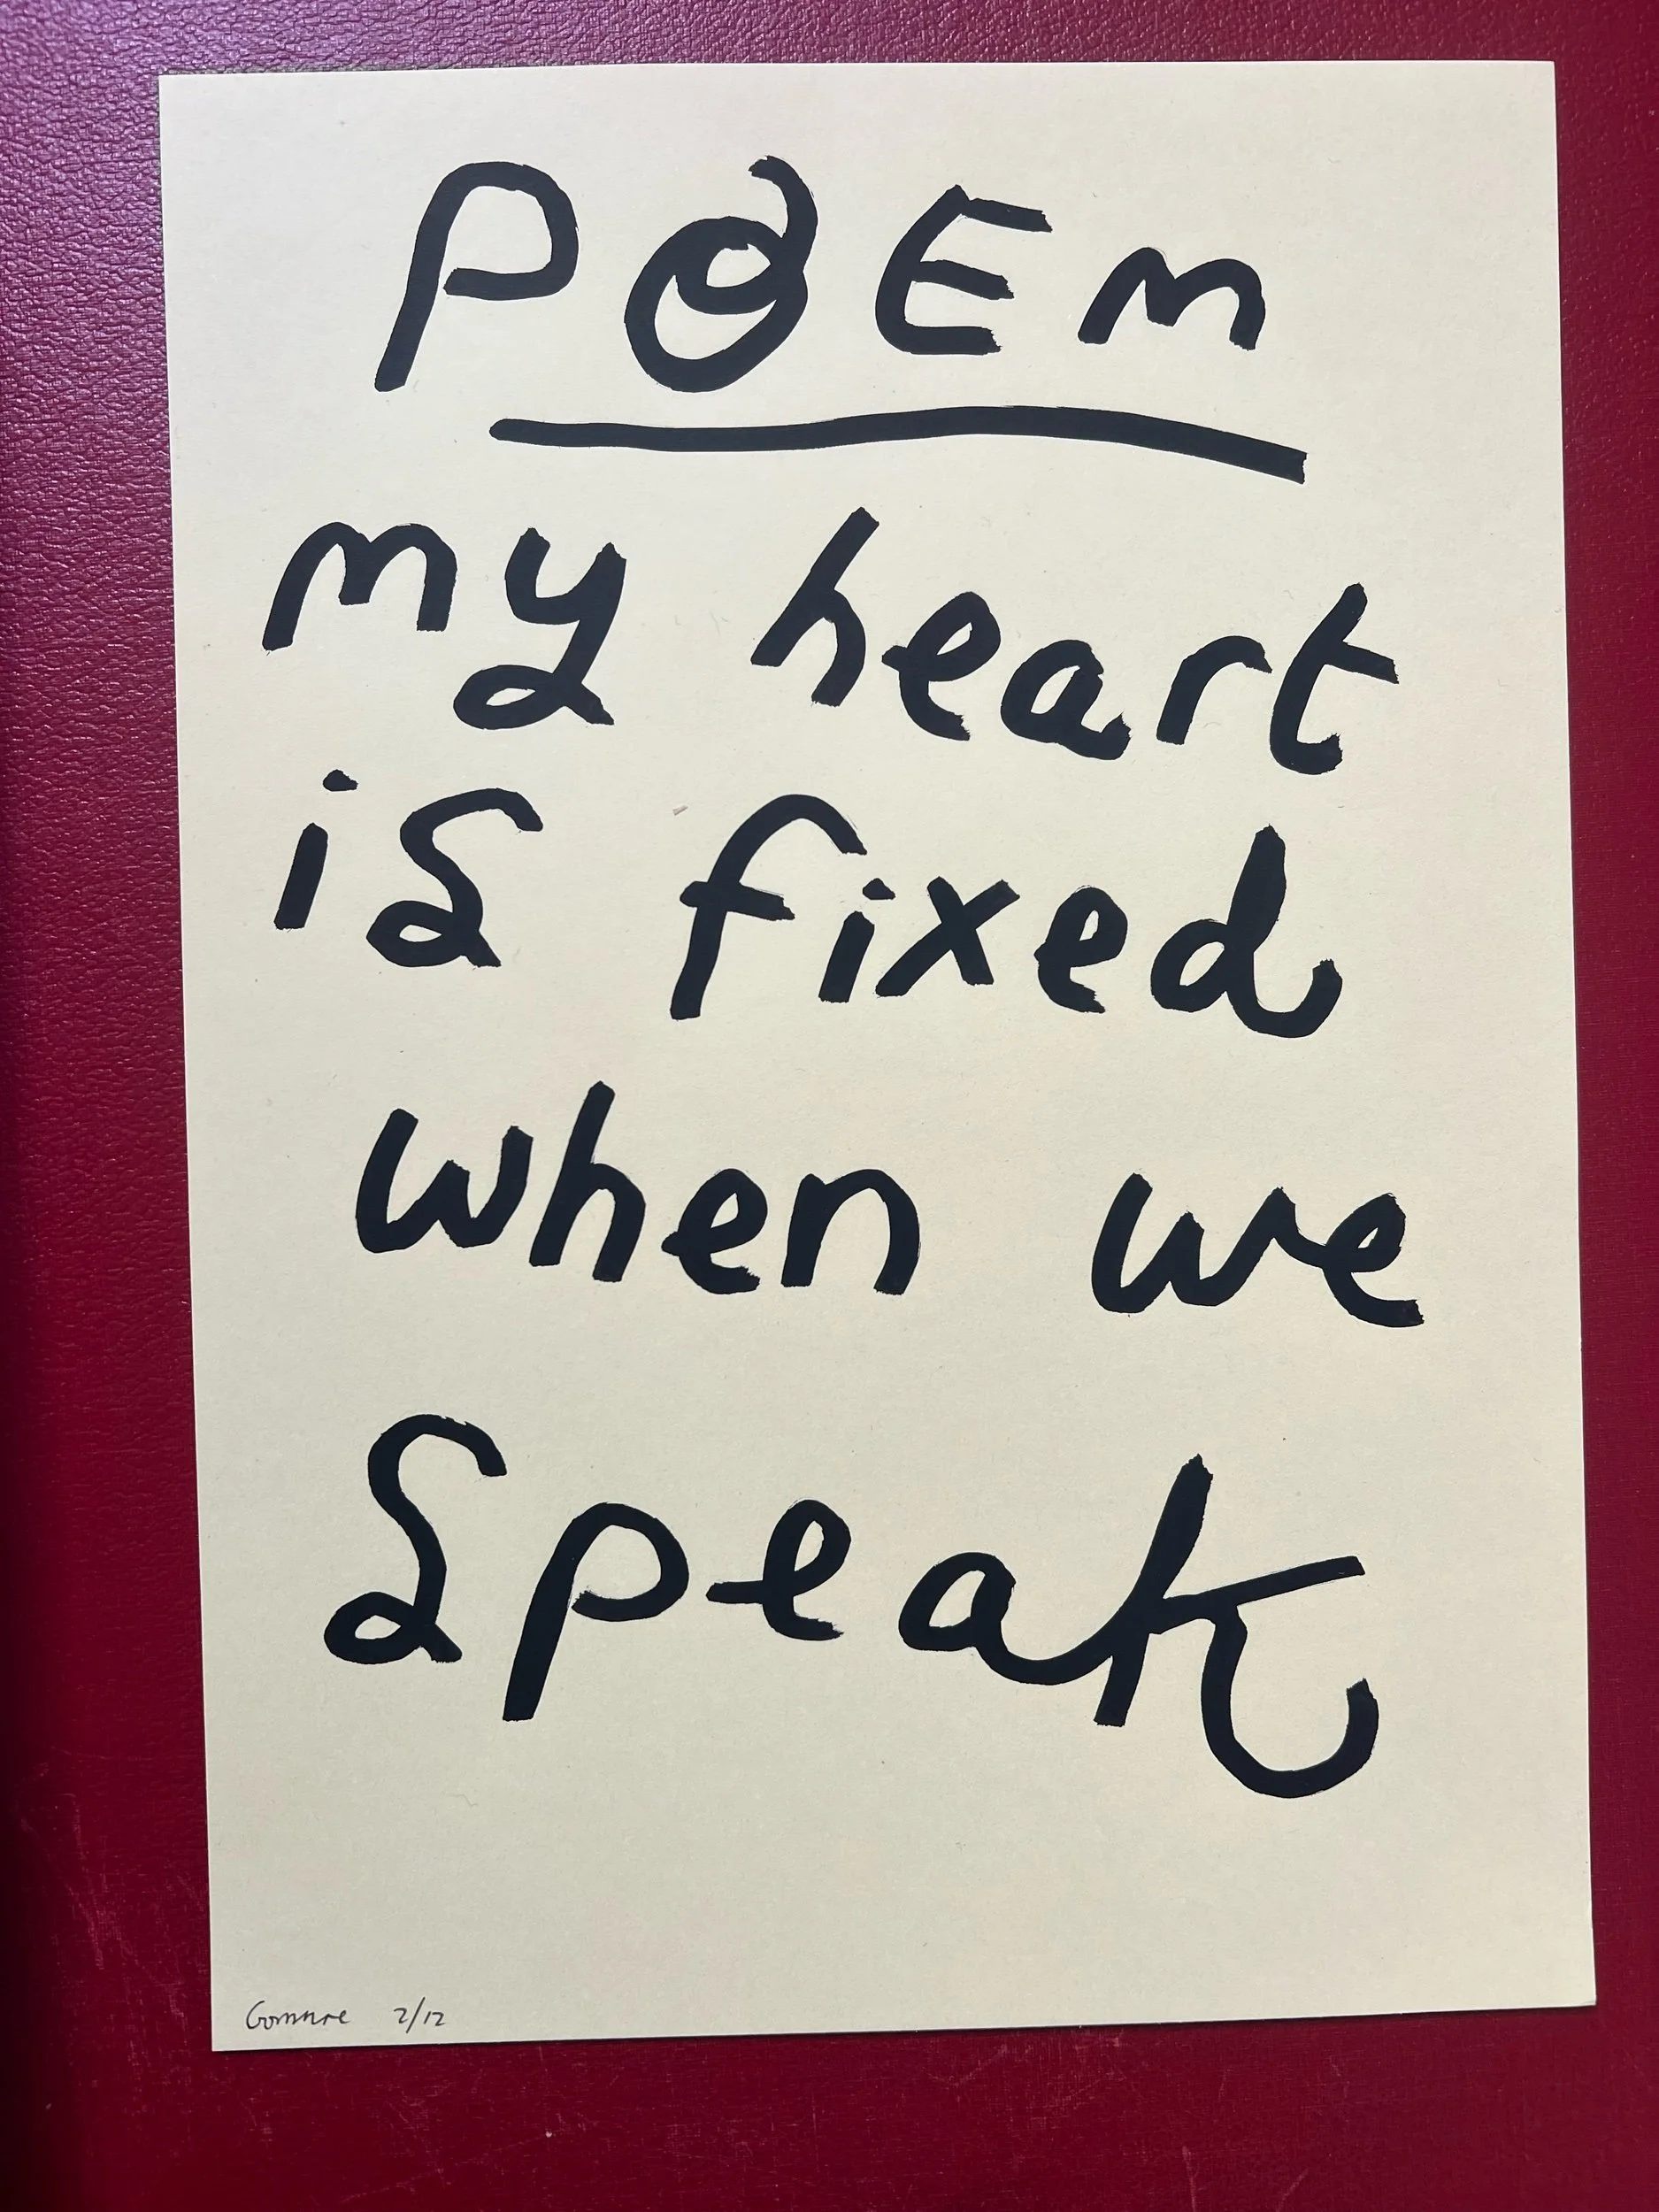 POEM
my heart
is fixed
when we
Speak
2/12